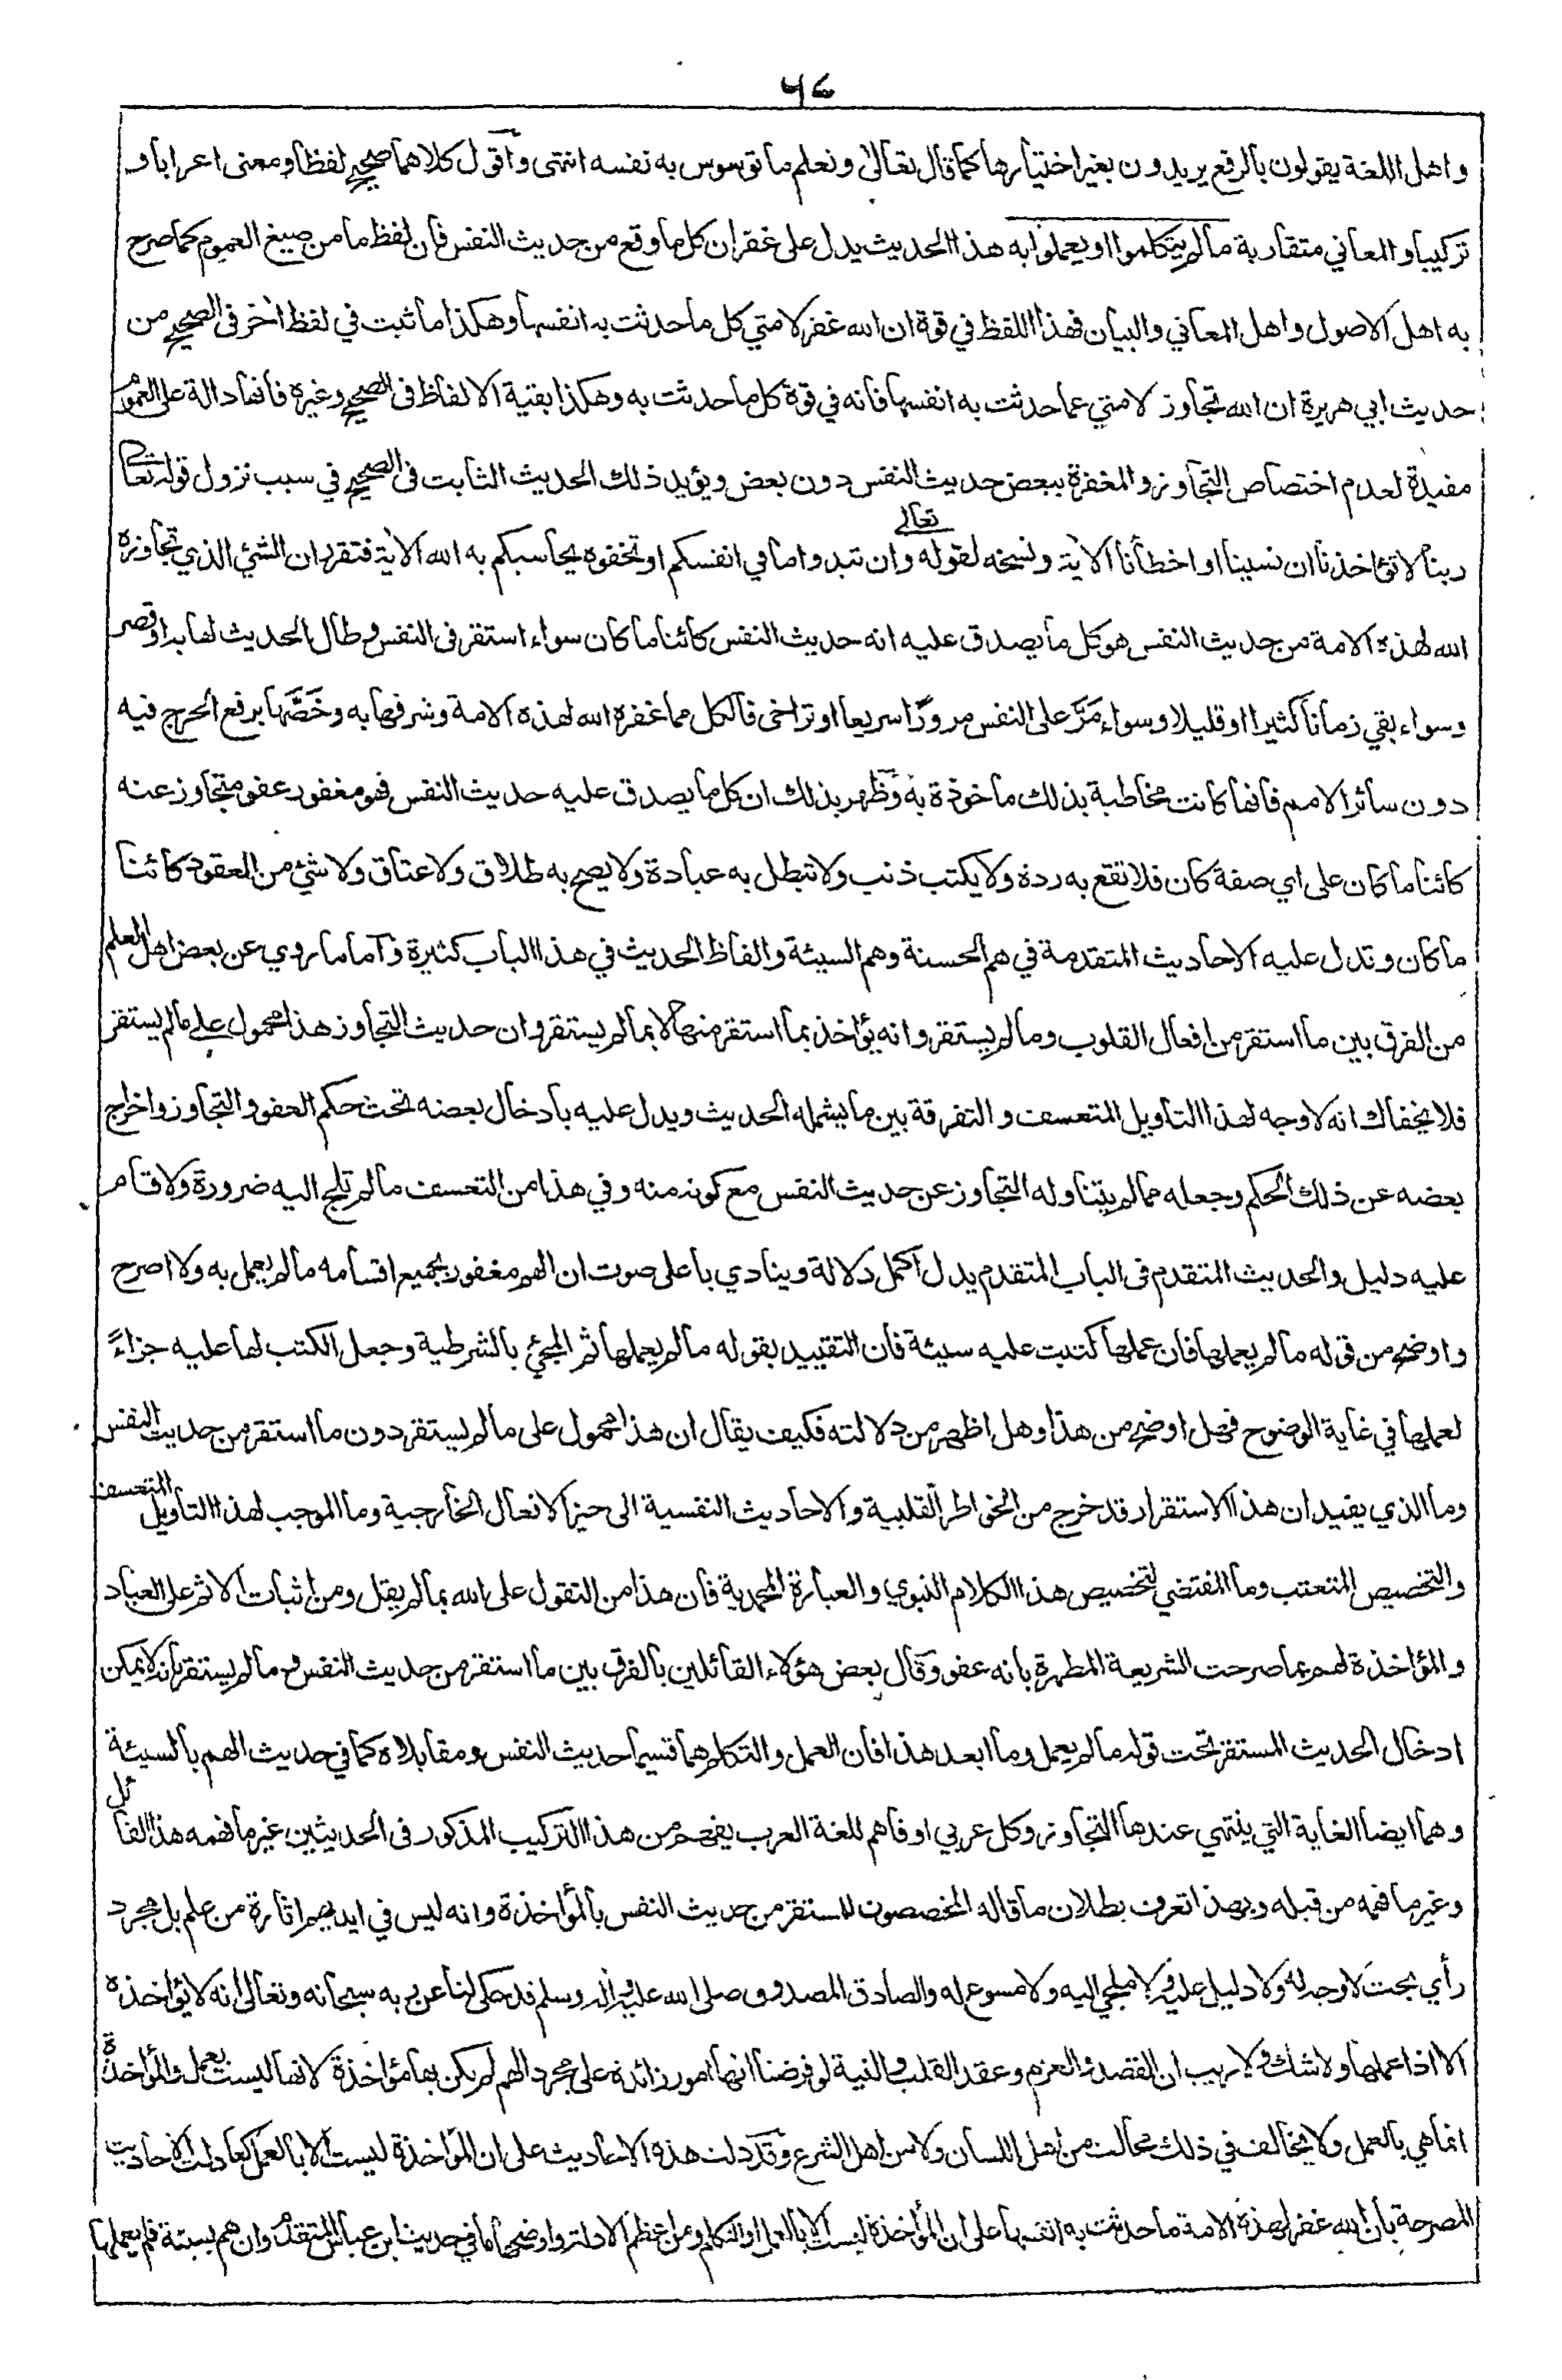 ٤٦
واهل اللغة يقولون بالرفع يريدون بغير اختيارها كما قال تعالى ونعلم ما توسوس به نفسه انتهى واقول كلاهما صحيح لفظا ومعنى اعرابا و
تركيبا والمعاني متقاربة مالم يتكلموا او يعملوا به هذا الحديث يدل على غفران كل ما وقع من حديث النفس فان لفظ ما من صيغ العموم كما صرح
به اهل الاصول واهل المعاني والبيان فهذا اللفظ في قوة ان الله غفر لامتي كل ما حدثت به انفسها وهكذا ما ثبت في لفظ اخر فى الصحيح من
حديث ابي هريرة ان الله تجاوز لامتي عما حدثت به انفسها فانه في قوة كل ما حدثت به وهكذا بقية الالفاظ فى الصحيح وغيره فانها دالة على العموم
مفيدة لعدم اختصاص التجاوز والمغفرة ببعض حديث النفس دون بعض ويؤيد ذلك الحديث الثابت فى الصحيح في سبب نزول قوله تعالى
ربنا لا تؤاخذنا ان نسينا او اخطأنا الاية ونسخه لقوله تعالى وان تبدوا ما في انفسكم او تخفوه يحاسبكم به الله الاية فتقرر ان الشئ الذي تجاوزه
الله لهذه الامة من حديث النفس هو كل ما يصدق عليه انه حديث النفس كائنا ما كان سواء استقر فى النفس وطال الحديث لها به او قصر
وسواء بقي زمانا كثيرا او قليلا وسواء مَرَّ على النفس مرورًا سريعا او تراخى فالكل مما غفره الله لهذه الامة وشرفها به وخَصَّها برفع الحرج فيه
دون سائر الامم فانها كانت مخاطبة بذلك ماخوذة به وظهر بذلك ان كل ما يصدق عليه حديث النفس فهو مغفور عفو متجاوز عنه
كائنا ما كان على اي صفة كان فلا تقع به ردة ولا يكتب ذنب ولا تبطل به عبادة ولا يصح به طلاق ولا عتاق ولا شئ من العقود كائنا
ما كان وتدل عليه الاحاديث المتقدمة في هم الحسنة وهم السيئة والفاظ الحديث في هذا الباب كثيرة واما ما روي عن بعض اهل العلم
من الفرق بين ما استقر من افعال القلوب وما لم يستقر وانه يؤاخذ بما استقر منها لا بما لم يستقر وان حديث التجاوز هذا محمول على مالم يستقر
فلا يخفاك انه لا وجه لهذا التاويل المتعسف والتفرقة بين ما يشمله الحديث ويدل عليه بادخال بعضه تحت حكم العفو والتجاوز واخراج
بعضه عن ذلك الحكم وجعله مما لم يتناوله التجاوز عن حديث النفس مع كونه منه وفي هذا من التعسف ما لم تلج اليه ضرورة ولا قام
عليه دليل والحديث المتقدم فى الباب المتقدم يدل اكمل دلالة وينادي باعلى صوت ان الهم مغفور بجميع اقسامه مالم يعمل به ولا اصرح
واوضح من قوله مالم يعملها فان عملها كتبت عليه سيئة فان التقييد بقوله مالم يعملها ثم المجئ بالشرطية وجعل الكتب لها عليه جزاءً
لعملها في غاية الوضوح فهل اوضح من هذا وهل اظهر من دلالته فكيف يقال ان هذا محمول على مالم يستقر دون ما استقر من حديث النفس
وما الذي يفيد ان هذا الاستقرار قد خرج من الخواطر القلبية والاحاديث النفسية الى حيز الافعال الخارجية وما الموجب لهذا التاويل المتعسف
والتخصيص المتعتب وما المقتضي لتخصيص هذا الكلام النبوي والعبارة المحمدية فان هذا من التقول على الله بما لم يقل ومن اثبات الاثم على العباد
والمؤاخذة لهم بما صرحت الشريعة المطهرة بانه عفو وقال بعض هؤلاء القائلين بالفرق بين ما استقر من حديث النفس وما لم يستقر بانه لا يمكن
ادخال الحديث المستقر تحت قوله مالم يعمل وما ابعد هذا فان العمل والتكلم هما قسيما حديث النفس ومقابلاه كما في حديث الهم بالسيئة
وهما ايضا الغاية التي ينتهي عندها التجاوز وكل عربي او فاهم للغة العرب يفهم من هذا التركيب المذكور فى الحديثين غير ما فهمه هذا القائل
وغير ما فهمه من قبله وبهذا تعرف بطلان ما قاله المخصصون للمستقر من حديث النفس بالمؤاخذة وانه ليس في ايديهم اثارة من علم بل مجرد
رأي بحت لا وجه له ولا دليل عليه ولا ملجئ اليه ولا مسوغ له والصادق المصدوق صلى الله عليه واله وسلم قد حكى لنا عن ربه سبحانه وتعالى انه لا يؤاخذه
الا اذا عملها ولا شك ولا ريب ان القصد والعزم وعقد القلب والنية لو فرضنا انها امور زائدة على مجرد الهم لم يكن بها مؤاخذة لانها ليست بعمل والمؤاخذة
انما هي بالعمل ولا يخالف في ذلك مخالف من اهل اللسان ولا من اهل الشرع وقد دلت هذه الاحاديث على ان المؤاخذة ليست الا بالعمل كما دلت الاحاديث
المصرحة بان الله غفر لهذه الامة ما حدثت به انفسها على ان المؤاخذة ليست الا بالعمل او التكلم ومن اعظم الادلة واوضحها ما في حديث ابن عباس المتقدم وان هم بسيئة فلم يعملها